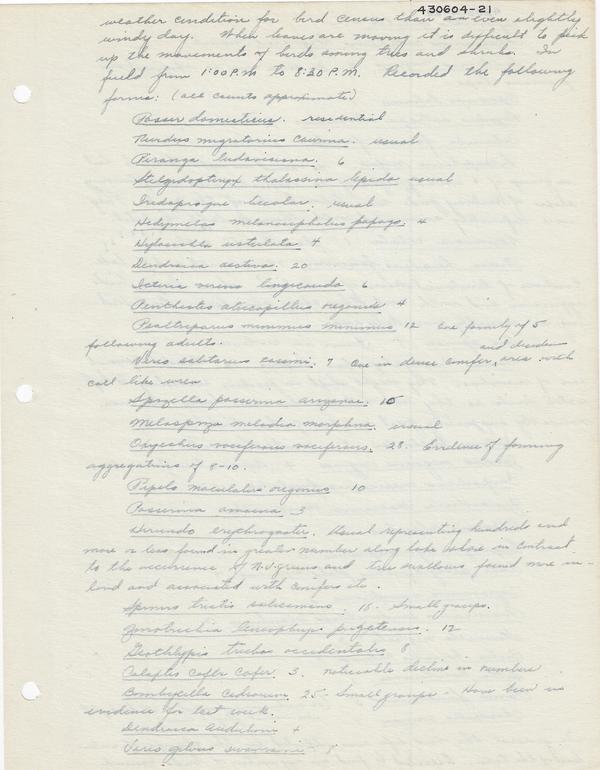 430604-21
weather condition for bird census than an even slightly
windy day. When leaves are moving it is difficult to pick
up the movements of birds among trees and shrubs. In
field from 1:00 P.M. to 8:30 P.M. Recorded the following
forms: (all counts approximate)
Passer domesticus. residential
Turdus migratorius caurina. usual
Piranga ludoviciana. 6
Stelgidopteryx thalassina lepida usual
Iridoprocne bicolor. usual
Hedymeles melanocephalus papago. 4
Hylocichla ustulata 4
Dendroica aestiva. 20
Icteria virens longicauda 6
Penthestes atricapillus 4
Psaltriparus minimus minimus 12 One family of 5
following adults.
Vireo solitarius cassini. 7 One in dense conifer, and
call like wren
Spizella passerina arizonae. 10
Melospiza melodia morphna. usual
Oxyechus vociferous vociferous. 28. Evidence of forming
aggregations of 8-10.
Pipilo maculatus oregonus 10
Passerina amoena 3
Hirundo erythrogaster. Usual representing hundreds and
more or less found in greater number along lake shore in contrast
to the occurrence of N.V. greens and tree swallows found more in-
land and associated with conifers etc.
Spinus tristis salicamans. 15. Small groups.
Zonotrichia leucophrys pugetensis. 12
Geothlypis trichas occidentalis 8
Colaptes cafer cafer. 3. Noticeable decline in numbers
Bombycilla cedrorum. 25 - Small groups - Have been in
evidence for last week.
Dendroica auduboni 4
Vireo gilvus swainsoni 8